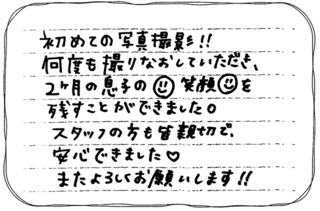 初めての写真撮影!!
何度も撮りなおしていただき、
2ヶ月の息子の☺笑顔☺を
残すことができました。
スタッフの方も皆親切で、
安心できました♡
またよろしくお願いします!!